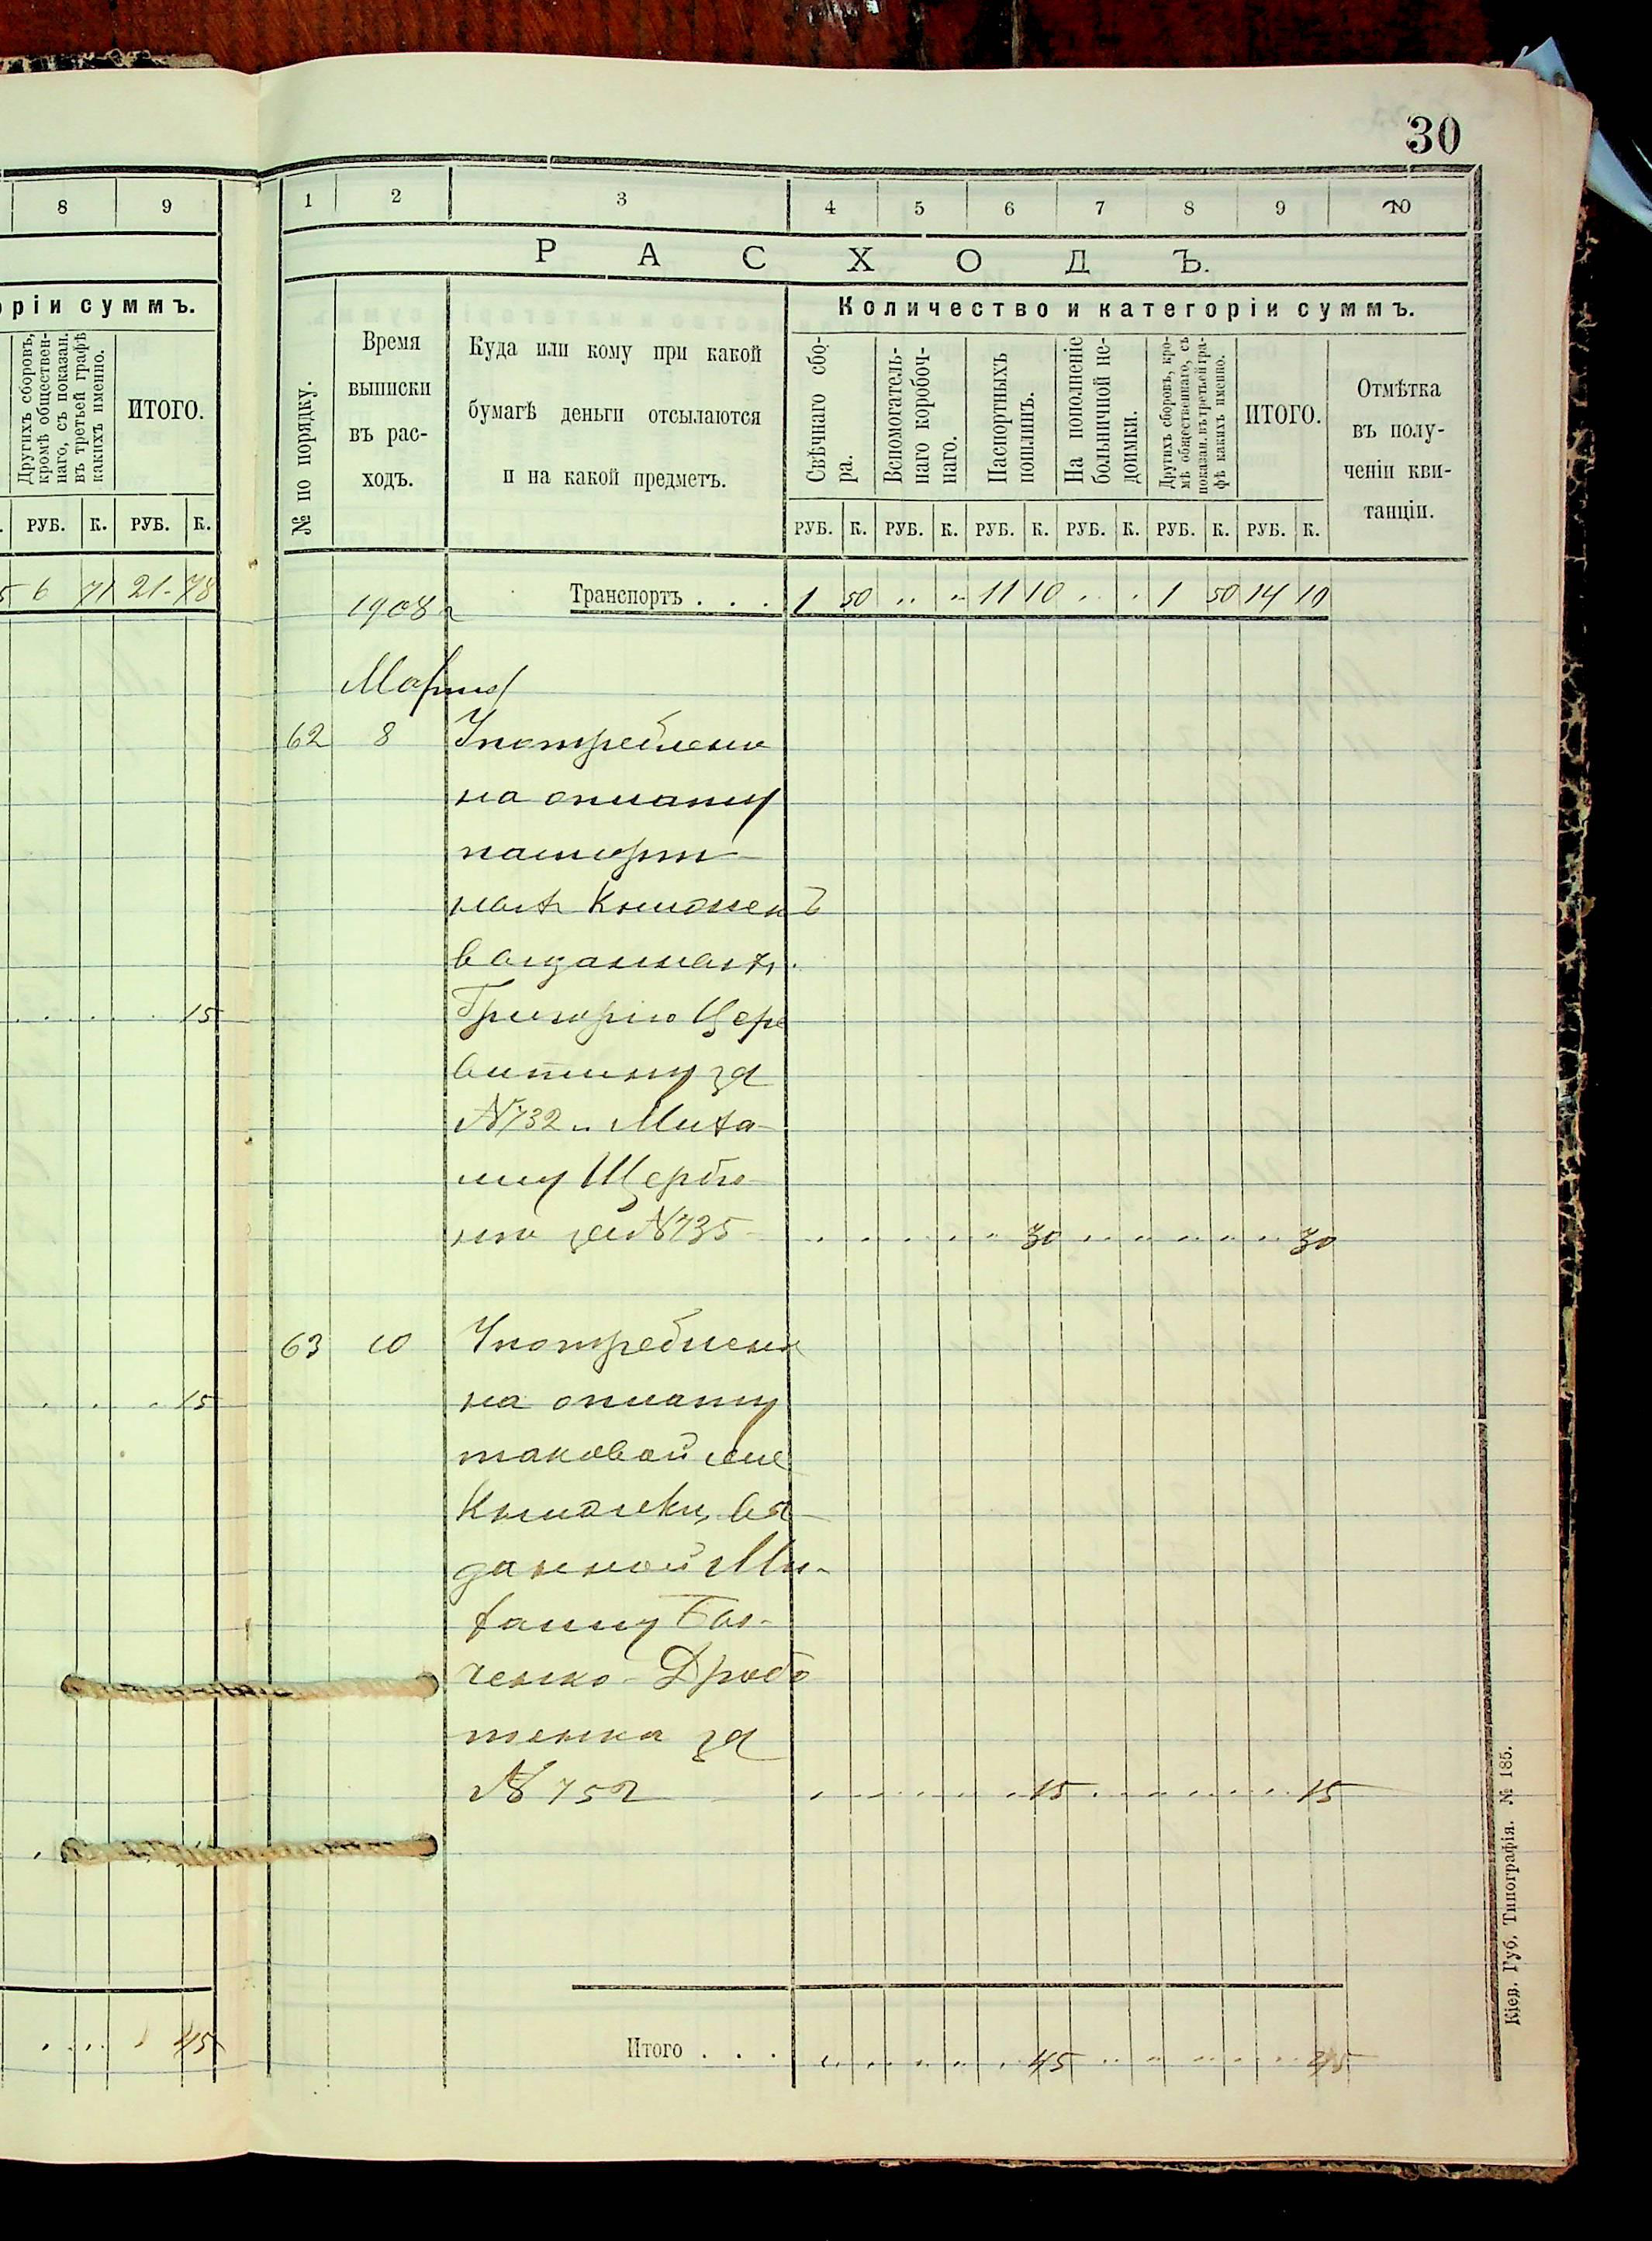 30
8 9
оріи суммъ.
Другихъ сборовъ,
кромѣ обществен-
наго, съ показан.
въ третьей графѣ
какихъ именно.
ИТОГО.
РУБ. К. РУБ. К.
5 6 71 21-78
15
15
45
1 2 3 4 5 6 7 8 9 10
РАСХОДЪ.
№ по порядку.
Время
выписки
въ рас-
ходъ.
Куда или кому при какой
бумагѣ деньги отсылаются
и на какой предметъ.
Количество и категоріи суммъ.
Свѣчнаго сбо-
ра.
Вспомогатель-
наго коробоч-
наго.
Паспортныхъ
пошлинъ.
На пополненіе
больничной не-
доимки.
Другихъ сборовъ, кро-
мѣ общественнаго, съ
показан. въ третьей гра-
фѣ какихъ именно.
ИТОГО.
Отмѣтка
въ полу-
ченіи кви-
танціи.
РУБ. К. РУБ. К. РУБ. К. РУБ. К. РУБ. К. РУБ. К.
1908 г Транспортъ . . . 1 50 .. .. 11 10 .. .. 1 50 14 10
Марта
62 8 Употреблено
на оплату
паспорт-
ныхъ Книжекъ
выданныхъ
Григорію Цере
витину за
№732 и Миха-
илу Щербо
за №735 30 30
63 10 Употреблено
на оплату
таковой же
Книжки, вы-
данной Ми-
хаилу
ченко-Дробо
тенка за
№ 752 15 15
Итого . . . 45 45
Кіев. Губ. Типографія. № 185.